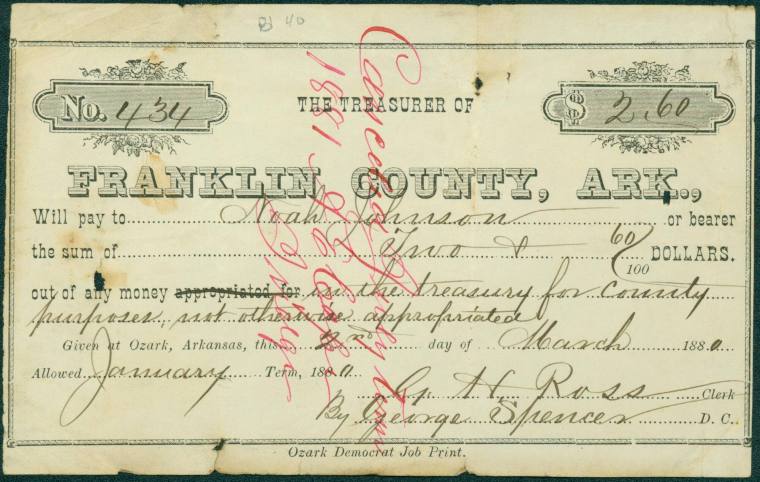 No. 434
THE TREASURER OF
$ 2.60
FRANKLIN COUNTY, ARK.,
Will pay to Noah Johnson or bearer
the sum of Two & 60/100 DOLLARS.
out of any money appropriated for in the treasury for County
purposes, not otherwise appropriated
Given at Ozark, Arkansas, this 2nd day of March 1880
Allowed January Term, 1880
H. Ross Clerk
By George Spencer D. C.
Ozark Democrat Job Print.
July
1881